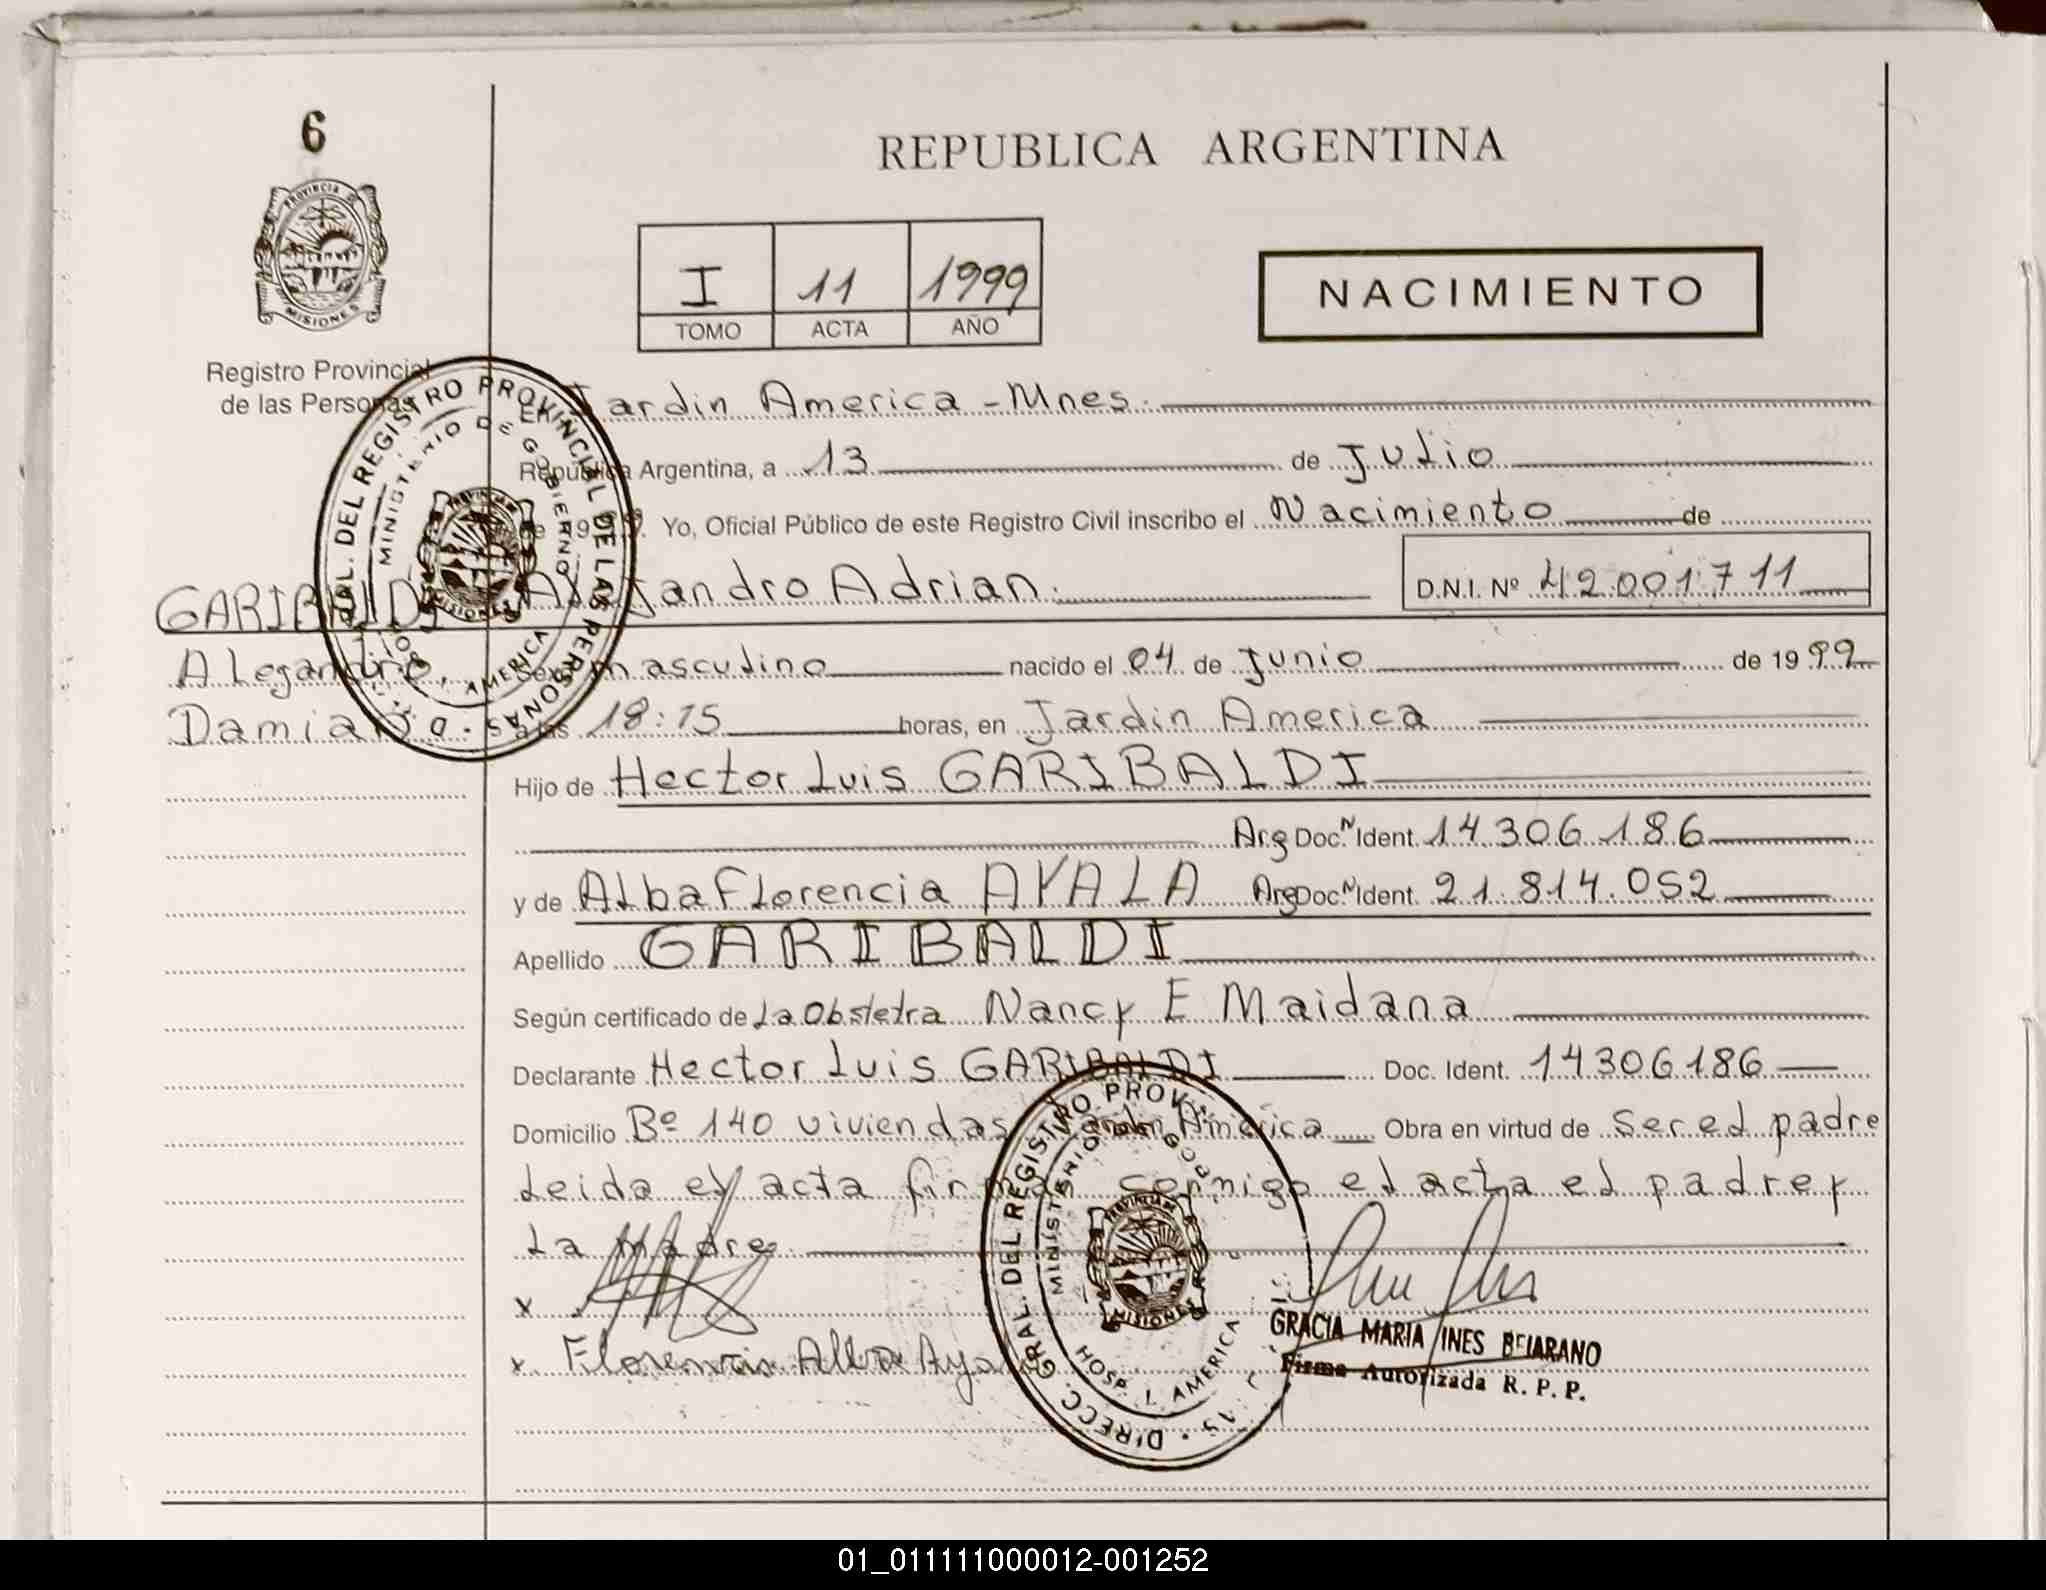 6
PROVINCIA
MISIONES
Registro Provincial
de las Personas
REPUBLICA ARGENTINA
I 11 1999
TOMO ACTA AÑO
NACIMIENTO
En Jardin America - Mnes.
República Argentina, a 13 de Julio
de 19 Yo, Oficial Público de este Registro Civil inscribo el Nacimiento de
GARIBALDI Alejandro Adrian. D.N.I. Nº 42.001.711
Alegandro, Sexo masculino nacido el 04 de Junio de 1999
Damian a las 18:15 horas, en Jardin America
Hijo de Hector Luis GARIBALDI
Arg Doc. N Ident. 14.306.186
y de Alba Florencia AYALA Arg Doc. N Ident. 21.814.052
Apellido GARIBALDI
Según certificado de La Obstetra Nancy E Maidana
Declarante Hector Luis GARIBALDI Doc. Ident. 14306186
Domicilio Bº 140 viviendas Jardin América Obra en virtud de Ser el padre
Leida el acta conmigo el acta el padre y
La Madre.
x
x Florencia Alba Ayala
GRAL. DEL REGISTRO PROVINCIAL DE LAS PERSONAS
MINISTERIO DE GOBIERNO
AMERICA
PROVINCIA
MISIONES
DIRECC. GRAL. DEL REGISTRO PROV
MINISTERIO
HOSP. J. AMERICA
PROVINCIA
MISIONES
GRACIA MARIA INES BEJARANO
Firma Autorizada R. P. P.
01_011111000012-001252